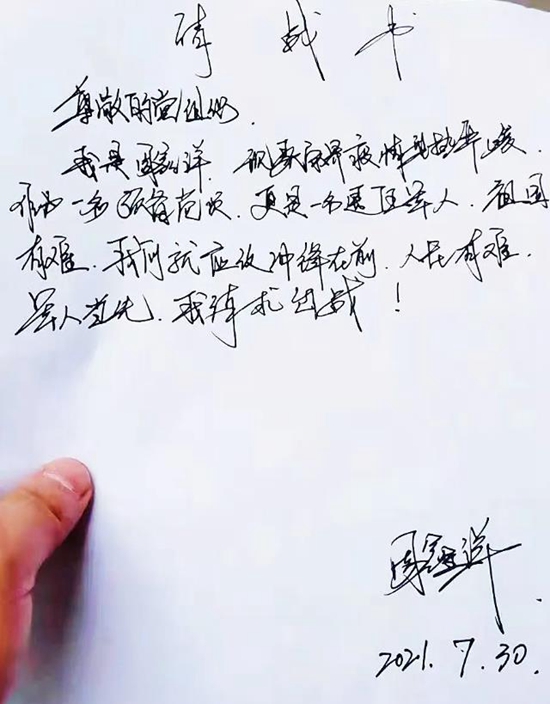 请战书
尊敬的党组织.
我是周富祥. 现张家界疫情形势严峻.
作为一名预备党员. 更是一名退伍军人. 祖国
有难. 我们就应该冲锋在前. 人民有难.
军人当先. 我请求出战！
周富祥.
2021.7.30.